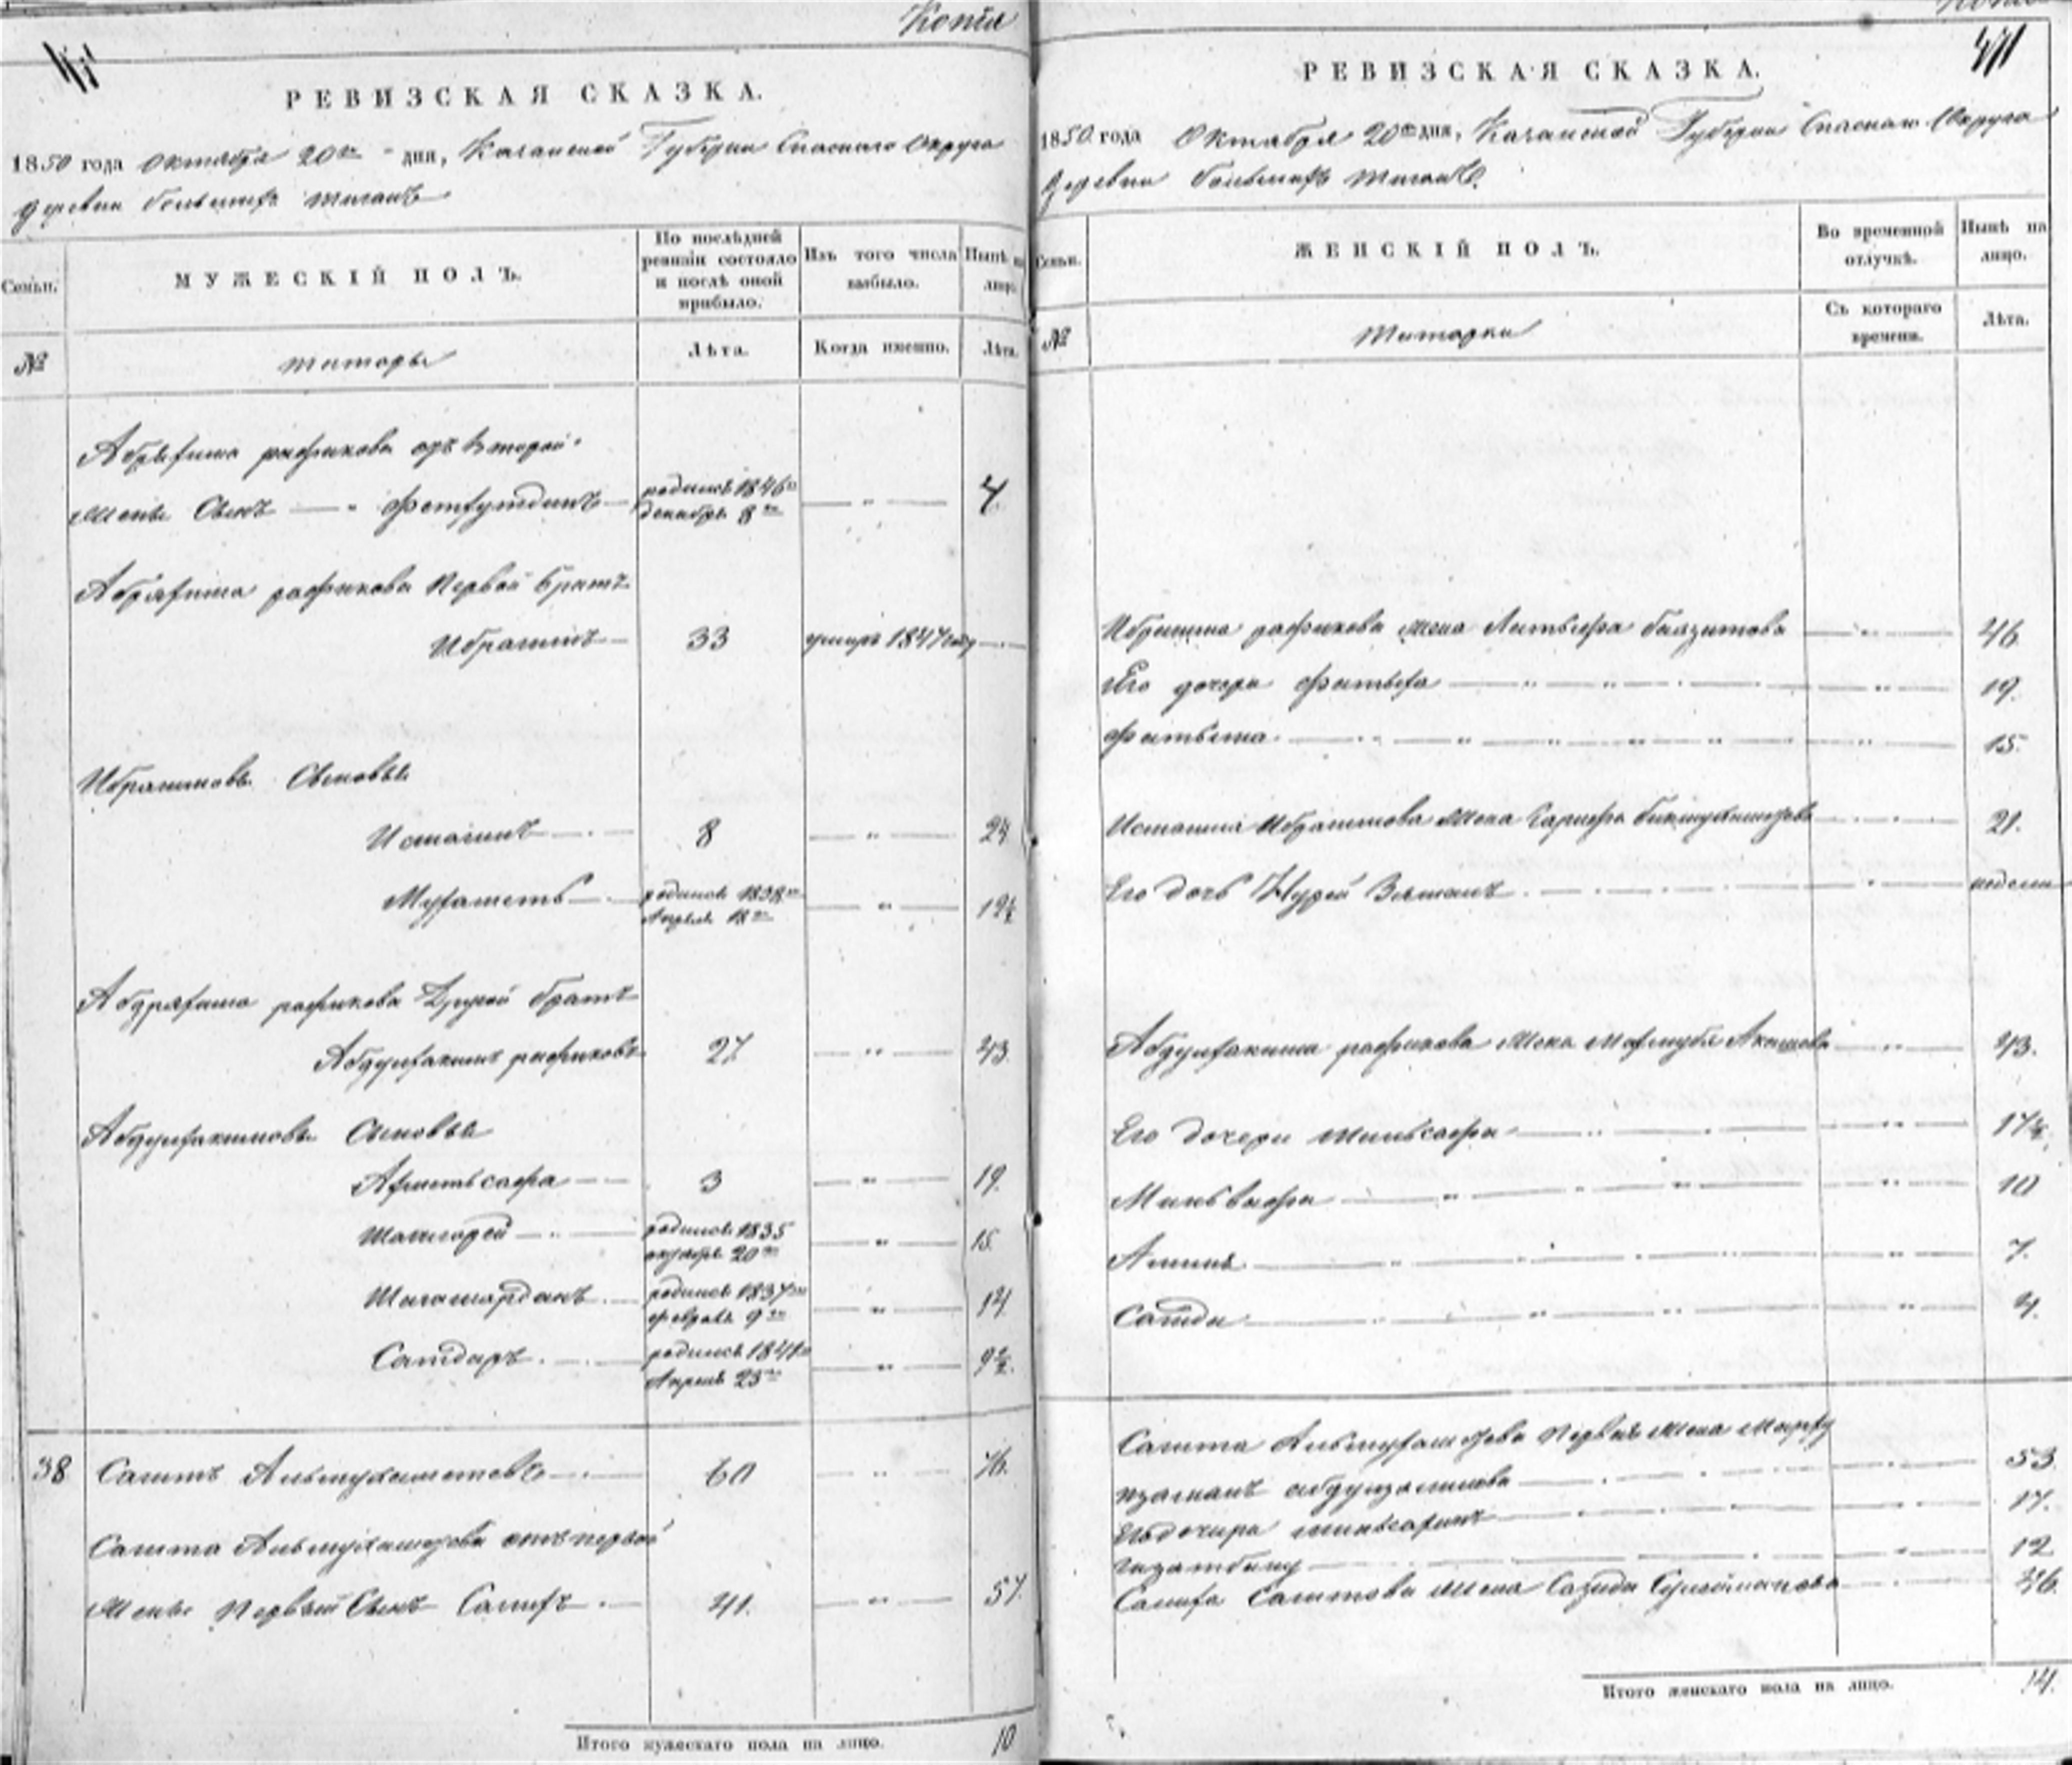 Копія
РЕВИЗСКАЯ СКАЗКА.
1850 года Октября 20го дня, Казанской Губернии Спаскаго Округа
деревни Большихъ Тиганъ
Семьи.
МУЖЕСКІЙ ПОЛЪ.
По послѣдней ревизіи состояло и послѣ оной прибыло.
Изъ того числа выбыло.
Нынѣ на лицо.
№
Татары
Лѣта.
Когда именно.
Лѣта.
Абряхима рафикова отъ второй
жены Сынъ — " Фетхутдинъ — родился 1846го декабря 8го — " — 4.
Абряхима рафикова Первой братъ
Ибрагимъ — 33 умеръ 1847 году —
Ибрагимовы Сыновья
Исмагилъ — 8 — " — 24
Мухаметь — родился 1838го Апреля 18го — " — 12½
Абдряхима рафикова Другой братъ
Абдулхакимъ рафиковъ 27 — " — 43.
Абдулхакимовы Сыновья
Ахметьсафа — 3 — " — 19.
Шагигарей — родился 1835 октября 20го — " — 15.
Шагимарданъ — родился 1837го февраля 9го — " — 14
Сатдаръ — родился 1841го Апреля 23го — " — 9½.
38 Сагитъ Альмухаметовъ — 60 — " — 76.
Сагита Альмухаметова отъ первой
жены Первый Сынъ Салихъ — 41. — " — 57.
Итого мужескаго пола на лицо. 10
РЕВИЗСКАЯ СКАЗКА.
1850 года Октября 20го дня, Казанской Губернии Спаскаго Округа
деревни Большихъ Тиганъ.
Семьи.
ЖЕНСКІЙ ПОЛЪ.
Во временной отлучкѣ.
Нынѣ на лицо.
№
Татарки
Съ котораго времени.
Лѣта.
Ибрагима рафикова жена Латыфа баязитова — " — 46
Его дочери Фатыха — " — 19.
Фатыма — " — 15.
Исмагила Ибрагимова жена — 21.
Его дочь Нурей Зяманъ — " — недели
Абдулхакима рафикова жена Махмубя — " — 43.
Его дочери Миньсафа — " — 17½.
Миньвафа — " — 10
Амина — " — 7.
Сагиди — " — 4.
Сагита Альмухаметова Первая жена
абдулзялилова — " — 53.
Его дочери — 17.
— " — 12
Салиха Сагитова жена Сагиди Сулейманова — 46.
Итого женскаго пола на лицо. 14.